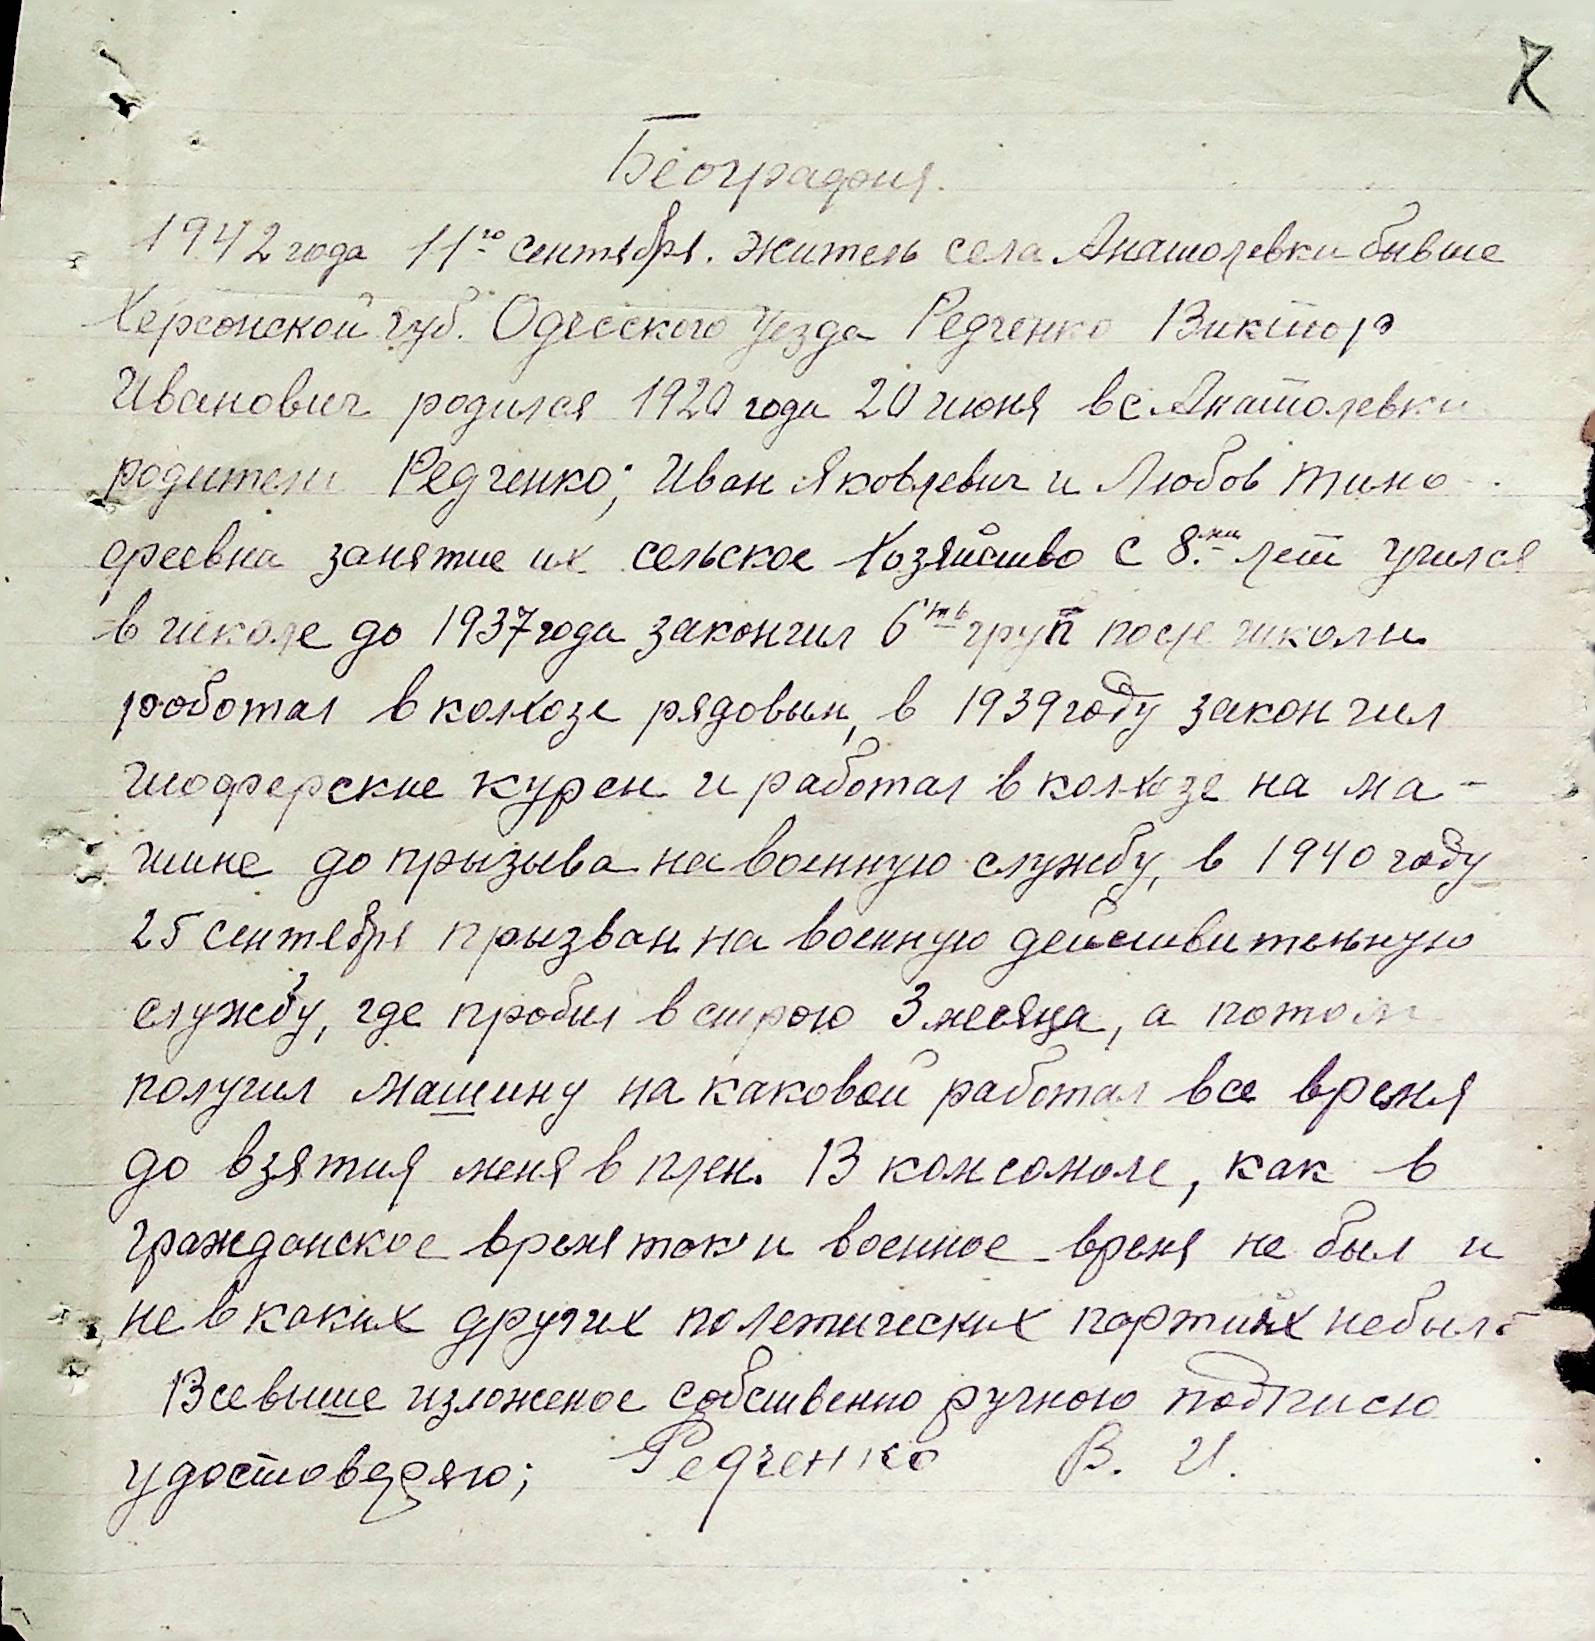 Беография.
1942 года 11го сентября. житель села Анатолевки бывше
Херсонской губ. Одесского Уезда Редченко Виктор
Иванович родился 1920 года 20 июня в с Анатолевки
родители Редченко; Иван Яковлевич и Любов Тимо-
феевна занятие их сельское Хозяйство с 8.ми лет учился
в школе до 1937 года закончил 6ть груп после школы
роботал в колхозе рядовым, в 1939 году закончил
шоферские курсы и работал в колхозе на ма-
шине до призыва на военную службу, в 1940 году
25 сентября призван на военную действительную
службу, где пробыл в строю 3 месяца, а потом
получил машину на каковой работал все время
до взятия меня в плен. В комсомоле, как в
гражданское время так и военное время не был и
не в каких других полетических партиях небыл.
Все выше изложеное собственно ручною подписю
удостоверяю; Редченко В. И.